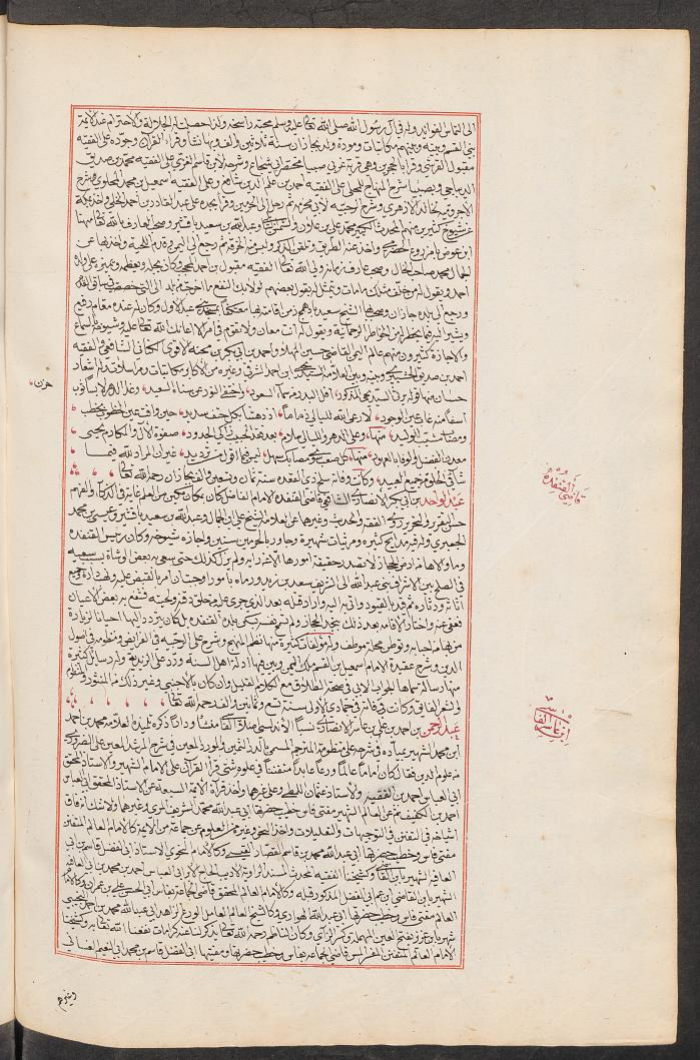 الى التماس الفوايد وله في آل رسول الله صلى الله تعالى عليه وسلم محبة راسخة ولذا حصلت له الجلالة والاحترام عند الايمة
بني القسم وبينه وبينهم مكاتبات ومودة ولد بجازان سنة ثلاثين والف وبها نشا وقرا القرآن وجوده على الفقيه
مقبول القرشي وقرا بالحجرين وهي قرية غربي صبيا مختصر ابي شجاع وشرحه لابن قاسم الغزي على الفقيه محمد بن صديق
الديباجي وبصبيا شرح المنهاج للمحلي على الفقيه احمد بن علم الدين شافع وعلى الفقيه اسمعيل بن محمد المحلوي شرح
الاجرومية لخالد الازهري وشرح الرحبية ثم رحل الى الحرمين وقرا بجدة على عبد القادر بن احمد الخلي واخذ بمكة
عن شيوخ كثيرين منهم المحدث الكبير محمد علي بن علان والشمس وعبد الله بن سعيد باقشير وصحب العارف بالله تعالى مهنا
ابن عوض بامزروع الحضرمي واخذ عنه الطريق وتلقن الذكر ولبس الخرقة ثم رجع الى اليمن فدخل اللحية واخذ بها عن
الجمال محمد صاحب الخال وصحب عارف زمانه ولي الله تعالى الفقيه مقبول بن احمد المحجب فكان يجله ويعظمه ويميزه على اولاد
احمد ويقول له من خلف مثلك مامات
ورجع الى بلده جازان وصحب الشيخ سعيد من اقامته بها معتكفا بمسجد عبد الاول وكان له عنده مقام رفيع
ويشير اليه فيما يخطر له من الخواطر الرحمانية ويقول له انت معان ولا تقوم في امر الا اعانك الله تعالى عليه وشيوخه في السماع
والاجازة كثيرون منهم عالم اليمن القاضي حسين المهلا واحمد بن ابي بكر بن محبة الاقوى الكناني الشافعي والفقيه
احمد بن صديق الحشيبري وبينه وبين العلامة احمد ابن المشرقي وغيره من الاكابر مكاتبات ومراسلات وله اشعار
حسان منها قوله يرثي السيد المذكور افل البدر من سماء السعود واختفى النور عن سناء المسعد وغدا الدهر لابسا ثوب
حزن
اسفا منه غاب عين الوجود لا رعى الله لليالي ذماما اذ دهتنا بكل حتف شديد حين وافت عين الخطوب بخطب
ومصاب شيب الوليد منها وعلى الدهر والليالي سلام بعد فقد الحبيب زاكي الجدود صفوة الآل والمكارم يحيى
معدن الفضل والوفا بالعهود منها كل صعب ومصاب سهل ليس فيما اقول من ترديد غير ان المراد لله فيما
شاء في الخلق من جميع العبيد وكانت وفاته سلخ ذي القعدة سنة ثمان وسبعين والف بجازان رحمه الله تعالى
عبد الواحد بن ابي بكر الانصاري الشافعي قاضي القنفدة الامام الفاضل كان بمكان مكين من العلم غاية في الذكاء والفهم
قاضي القنفدة
حسن التقرير والتحرير ذكره الفقه والحديث وغيرهما عن العلامة الشيخ علي بن الجمال وعبد الله بن سعيد باقشير وعيسى بن محمد
الجعبري وله فيه مدايح كثيرة ومرثيات شهيرة وجاور بالحرمين سنين واجازه شيوخه وكان رئيس القنفدة
وما والاها من ارض الحجاز لا تصدر حقيقة امورها الا عن رايه ولم يزل كذلك حتى سعى به بعض الوشاة بسبب سعيه
في الصلح بين الاشراف بني عبد الله الى الشريف سعد بن زيد ورماه بامور اوجبت ان امر بالقبض عليه ونهب داره وجميع
اثاثه ودثاره ثم قيد بالقيود واتي به اليه واراد قتله بعد الذي جرى عليه وحلق ذقنه ولحيته فشفع به بعض الاعيان
فعفى عنه واختار الاقامة بعد ذلك بنجد الحجاز ولم تطب نفسه بسكنى بلده القنفدة بل كان يتردد اليها احيانا لزيارة
من بها من احبابه وتوطن محلة موطف وله مؤلفات كثيرة منها نظم المنهج وشرح على الرحبية في الفرايض ومنظومة في اصول
الدين وشرح عقيدة الامام اسمعيل بن القسم ملك اليمن وبين فيها ادلة اهل السنة ورد على الزيدية وله رسائل كثيرة
منها رسالة سماها الجواب لابي في صحة الطلاق مع الكلام القليل وان كان بالاجنبي وغير ذلك من المنثور والمنظوم
والشعر الفايق وكانت وفاته في جمادى الاولى سنة تسع وثمانين والف رحمه الله تعالى
عبد الرحمن بن احمد بن علي بن عاشر الانصاري نسبا الاندلسي اصلا الفاسي منشا ودارا ذكره تلميذه العلامة محمد بن احمد
ابن عاشر الفاسي
ابن محمد الشهير بميارة في شرحه على منظومة المترجم المسمى بالدر الثمين والمورد المعين في شرح المرشد المعين على الضروري
من علوم الدين فقال كان اماما عالما ورعا عابدا متفننا في علوم شتى قرا القرآن على الامام الشهير والاستاذ المحقق
ابي العباس احمد بن الفقيه والاستاذ عثمان اللمطي وعلى غيرهما واخذ قراءة الايمة السبعة عن الاستاذ المحقق ابي العباس
احمد بن الكفيف ثم عن العالم الشهير مفتي فاس وخطيب حضرتها ابي عبد الله محمد الشريف المري وغيرهما ولا شك انه فاق
اشياخه في التفنن في التوجيهات والتعليلات واخذ النحو وغيره من العلوم عن جماعة من الايمة كالامام العالم المتفنن
مفتي فاس وخطيب حضرتها ابي عبد الله محمد بن قاسم القصار القيسي وكالامام النحوي الاستاذ ابي الفضل قاسم بن ابي
العافية الشهير بابن القاضي وشيخنا الفقيه المحدث المسند الراوية الاديب الحاج الابر ابي العباس احمد بن محمد بن ابي العافية
الشهير بابن القاضي ابن عم ابي الفضل المذكور قبله وكالامام العالم المحقق قاضي الجماعة بفاس ابي الحسن علي بن عمران وكالامام
العالم مفتي فاس وخطيب حضرتها ابي عبد الله الهواري وكالشيخ العالم العامل الورع الزاهد ابي عبد الله محمد بن احمد التجيبي
شهر بابن عزيز بفتح العين المهملة وكسر الزاي وكان الناظم رحمه الله تعالى يذكر لنا عنه كرامات نفعنا الله تعالى به وكشيخنا
الامام العالم المتفنن قاضي الجماعة بفاس وخطيب حضرتها ومفتيها ابي الفضل قاسم بن محمد بن ابي النعيم الغساني
وغيرهم